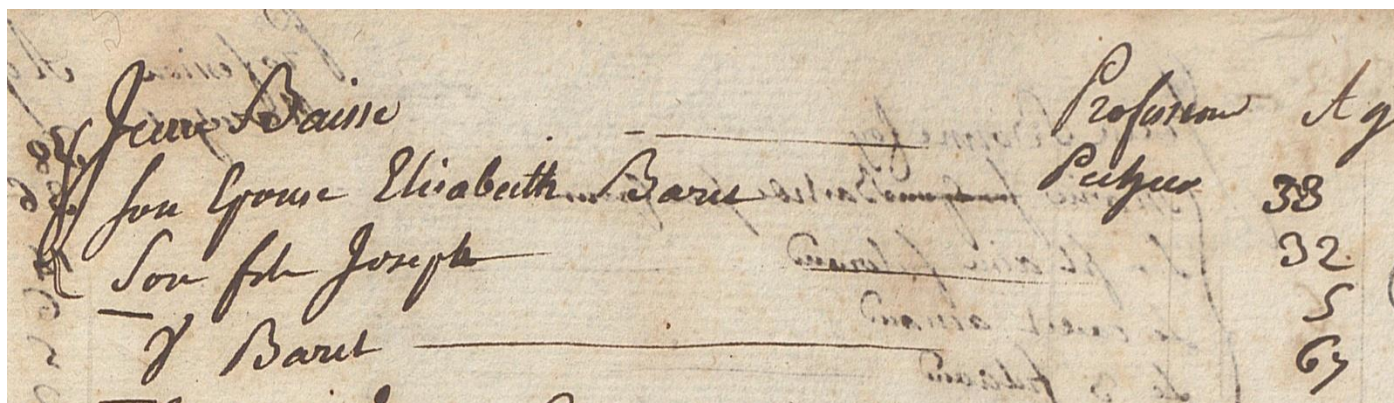 Profession Ag
Jean Baisse Pecheur 38
son Epouse Elisabeth Baret 32
Son fils Joseph 5
Baret 67